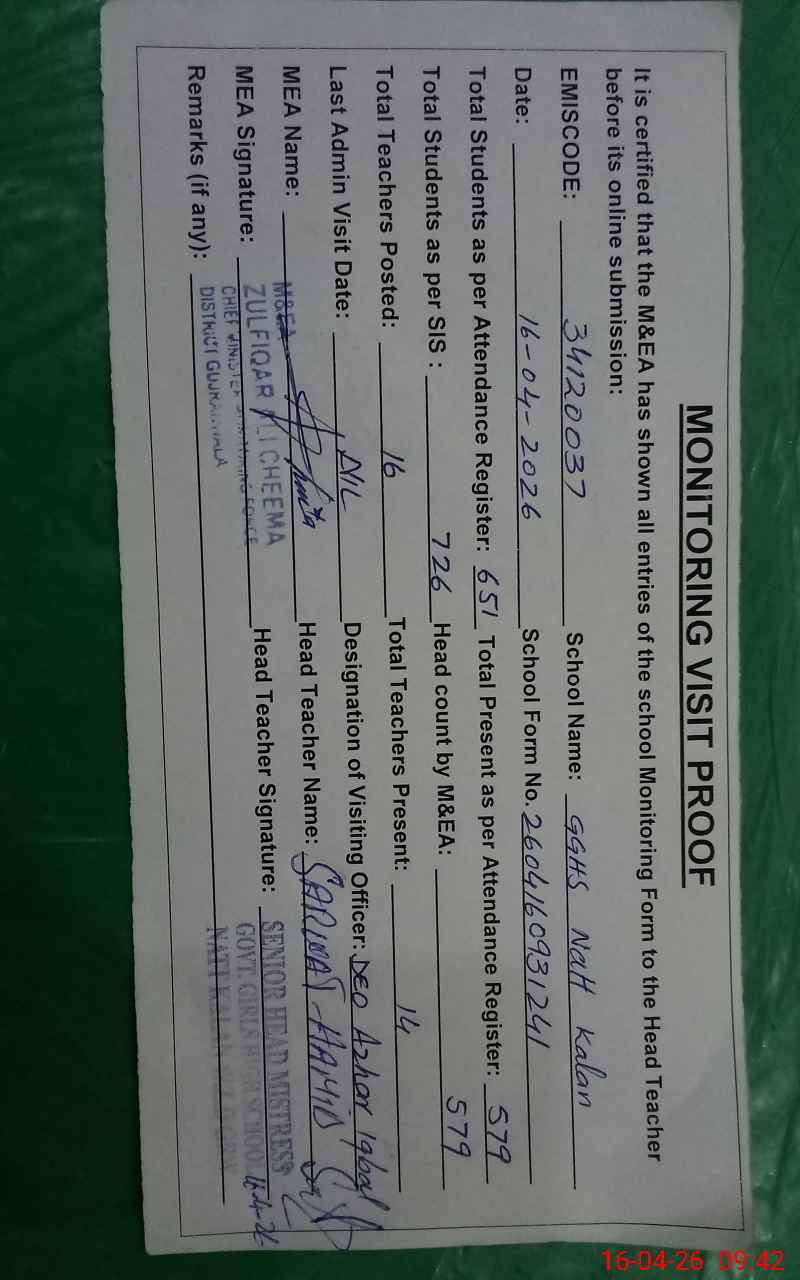 MONITORING VISIT PROOF
It is certified that the M&EA has shown all entries of the school Monitoring Form to the Head Teacher
before its online submission:
EMISCODE: 34120037 School Name: GGHS Natt Kalan
Date: 16-04-2026 School Form No. 2604160931241
Total Students as per Attendance Register: 651 Total Present as per Attendance Register: 579
Total Students as per SIS : 726 Head count by M&EA: 579
Total Teachers Posted: 16 Total Teachers Present: 14
Last Admin Visit Date: NIL Designation of Visiting Officer: DEO Azhar Iqbal
MEA Name: Head Teacher Name: HAMID
MEA Signature: Head Teacher Signature:
Remarks (if any):
M&EA
ZULFIQAR ALI CHEEMA
CHIEF MINISTER MONITORING FORCE
DISTRICT GUJRANWALA
SENIOR HEAD MISTRESS
GOVT. GIRLS HIGH SCHOOL
NATT KALAN
16-4-26
16-04-26 09:42